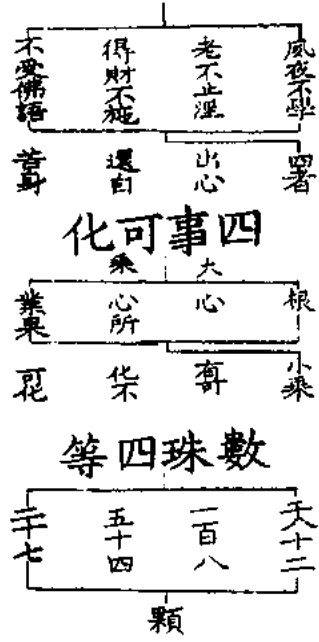 夙夜不學
老不止淫
得財不施
不受佛語
四者
出心
還自
苦身
四事可化
大乘
根
心
心所
業果
小乘
化不
可化
數珠四等
千八十
一百八
五十四
二十七
顆